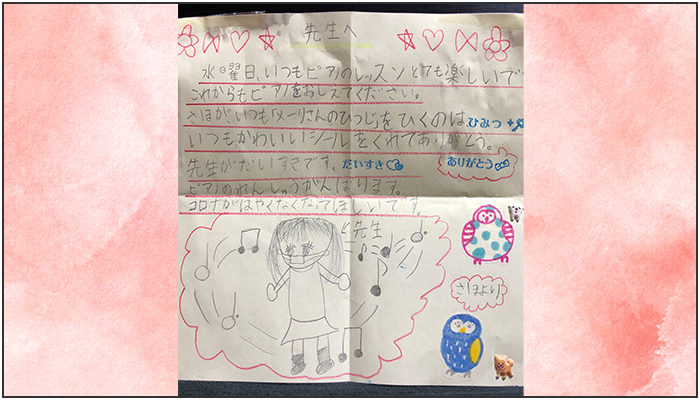 先生へ
水曜日、いつもピアノのレッスンとても楽しいで
これからもピアノをおしえてください。
さほがいつも「メーリさんのひつじ」をひくのは、ひみつ
いつもかわいいシールをくれてありがとう。
先生がだいすきです。だいすき ありがとう
ピアノのれんしゅうがんばります。
コロナがはやくなくなってほしいです。
先生
さほより